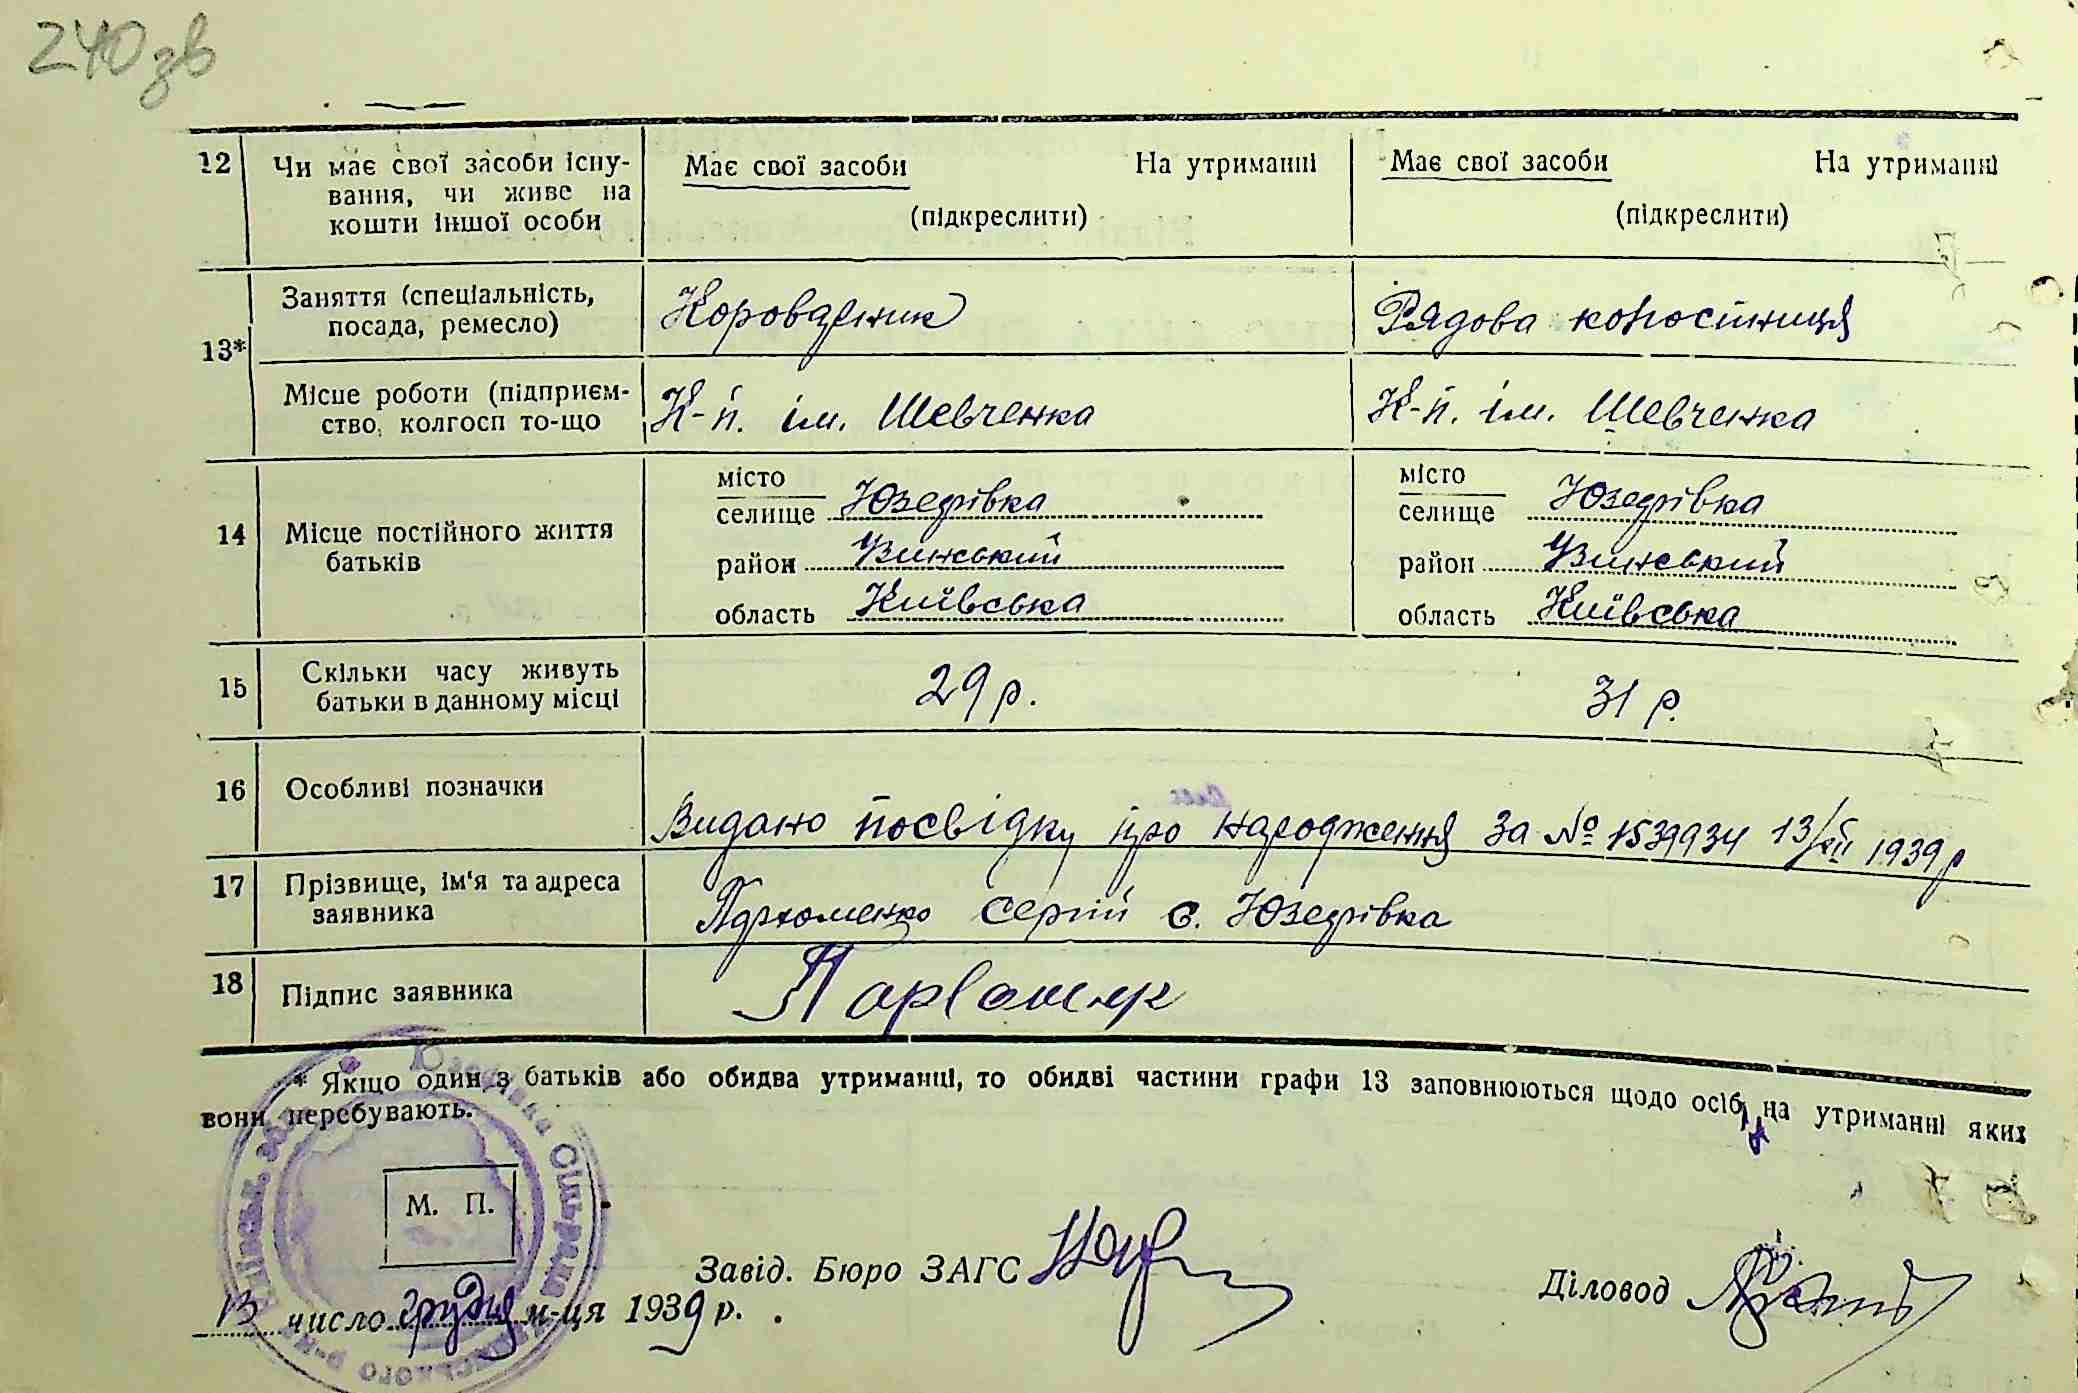 240 зв
12 Чи має свої засоби існу- Має свої засоби На утриманні Має свої засоби На утриманні
вання, чи живе на
кошти іншої особи (підкреслити) (підкреслити)
13* Заняття (спеціальність, Коровадник Рядова колгоспниця
посада, ремесло)
Місце роботи (підприєм- К-п. ім. Шевченка К-п. ім. Шевченка
ство, колгосп то-що
14 Місце постійного життя місто місто
батьків селище Юзефівка селище Юзефівка
район Узинський район Узинський
область Київська область Київська
15 Скільки часу живуть 29 р. 31 р.
батьки в данному місці
16 Особливі позначки
Видано посвідку про народження за № 1539934 13/XII 1939 р
17 Прізвище, ім'я та адреса Пархоменко Сергій с. Юзефівка
заявника
18 Підпис заявника Пархоменк
* Якщо один з батьків або обидва утриманці, то обидві частини графи 13 заповнюються щодо осіб, на утриманні яких
вони перебувають.
Юзефівка Сільрада
М. П.
Завід. Бюро ЗАГС
Діловод
13 число грудня м-ця 1939 р.